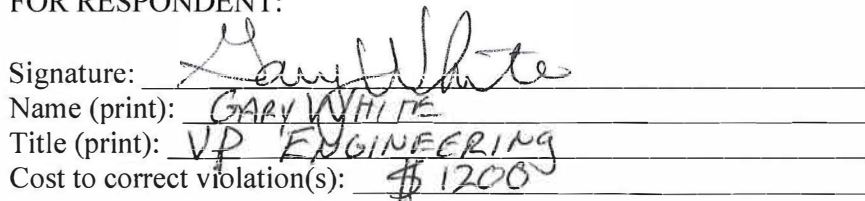 FOR RESPONDENT:
Signature: Gary White
Name (print): GARY WHITE
Title (print): VP ENGINEERING
Cost to correct violation(s): $1200